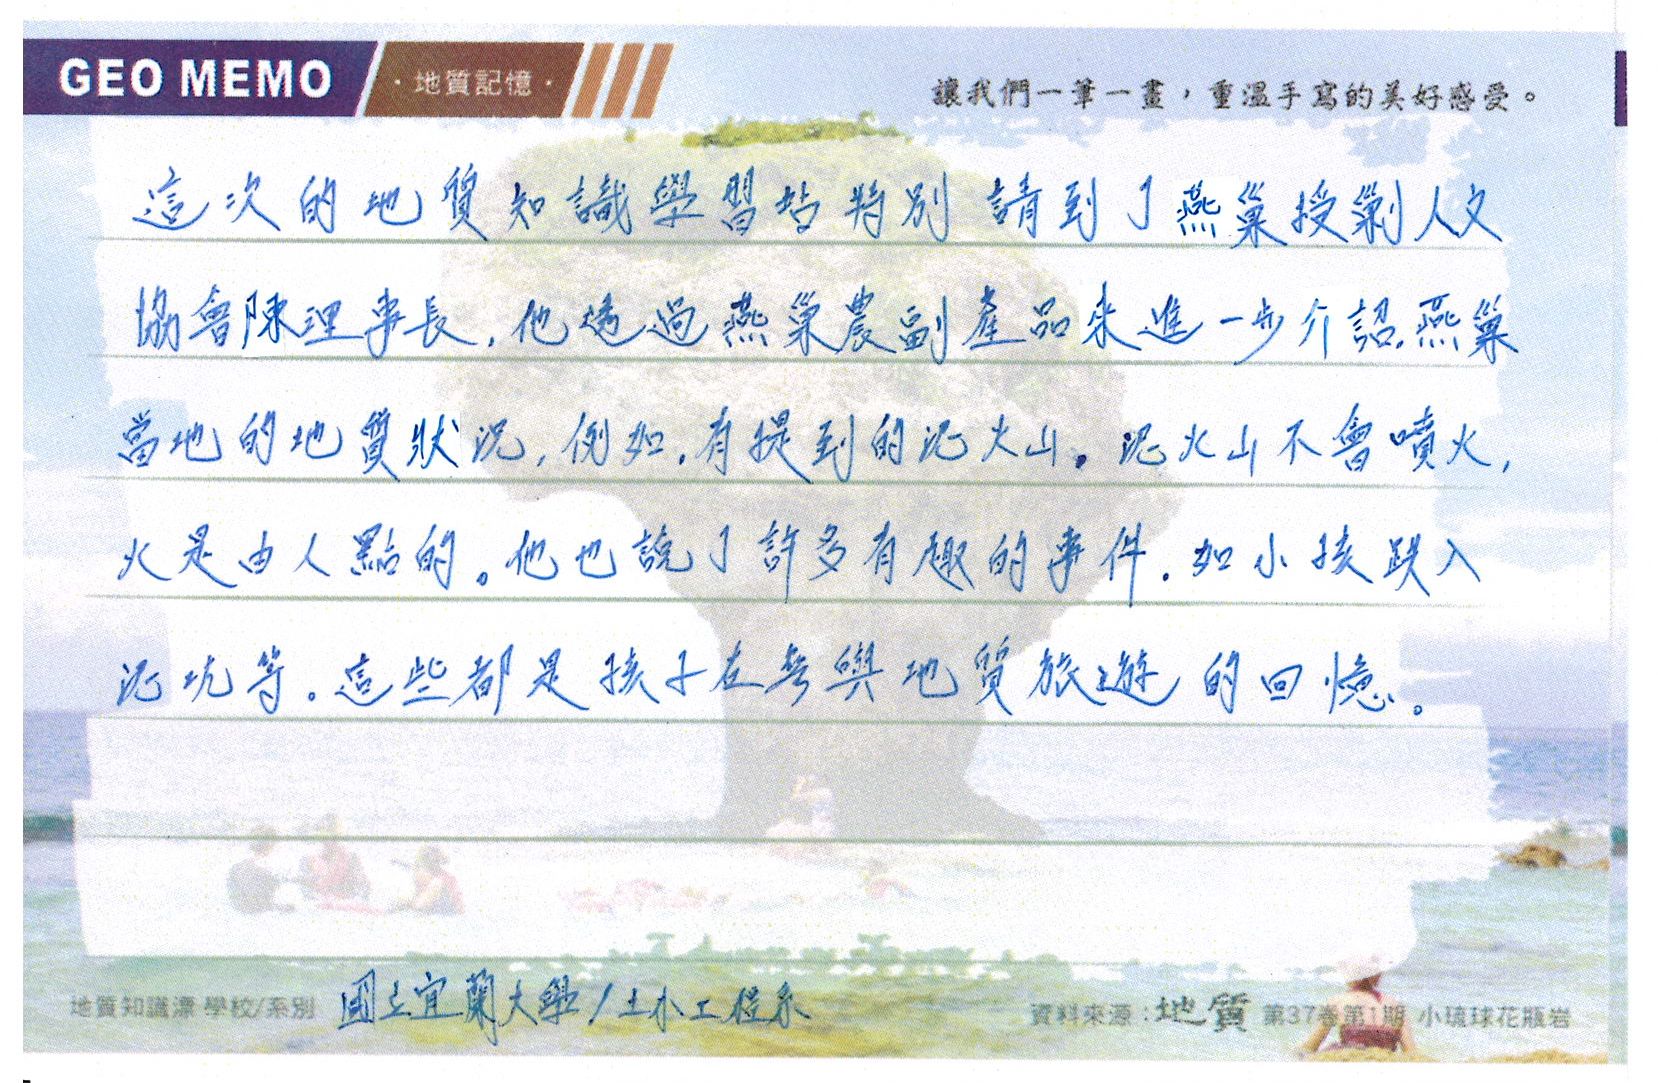 GEO MEMO ·地質記憶· 讓我們一筆一畫，重溫手寫的美好感受。
這次的地質知識學習站特別請到了燕巢授剿人文
協會陳理事長,他透過燕巢農副產品來進一步介認.燕巢
當地的地質狀況,例如.有提到的泥火山。泥火山不會噴火,
火是由人點的。他也說了許多有趣的事件.如小孩跌入
泥坑等。這些都是孩子在參與地質旅遊的回憶。
地質知識漂 學校/系別 國立宜蘭大學/土木工程系 資料來源：地質 第37卷第1期 小琉球花瓶岩